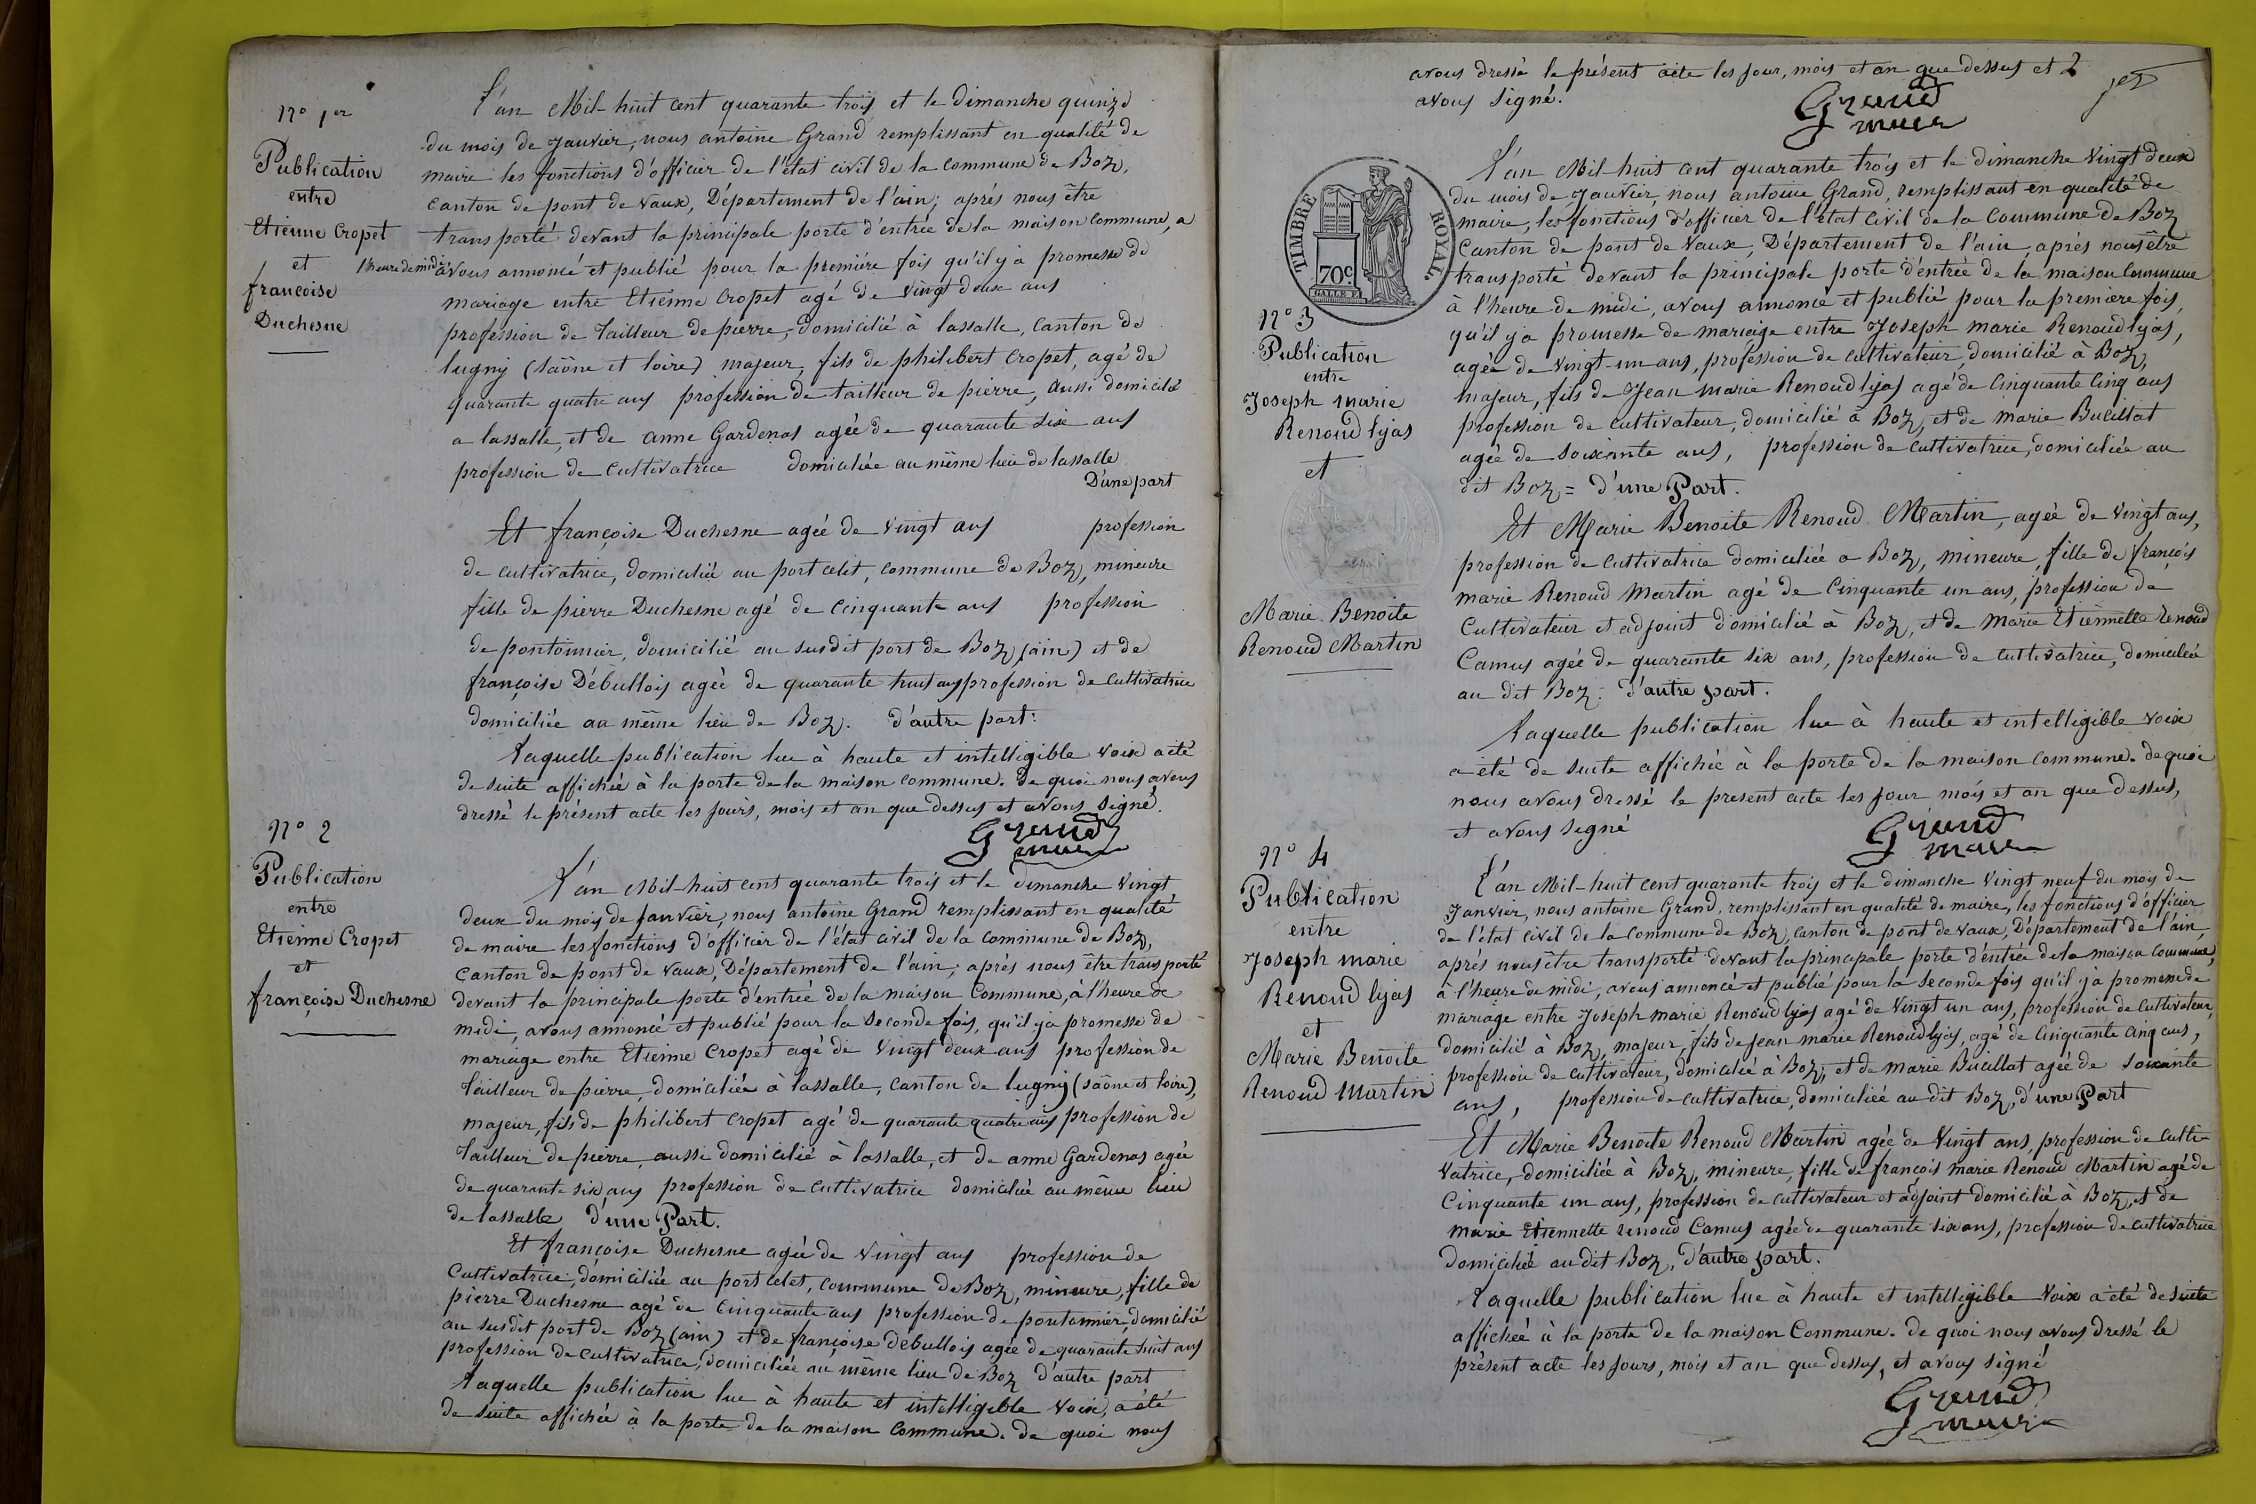 N° 1er
Publication
entre
Etienne Cropet
et
françoise
Duchesne
L'an Mil-huit cent quarante trois et le dimanche quinze
du mois de Janvier, nous antoine Grand remplissant en qualité de
maire les fonctions d'officier de l'état civil de la commune de Boz,
canton de pont de vaux, Département de l'ain; aprés nous être
transporté devant la principale porte d'entrée de la maison commune, a
l'heure de midi avons annoncé et publié pour la premiére fois qu'il y à promesse de
mariage entre Etienne Cropet agé de vingt deux ans
profession de tailleur de pierre, domicilié à lassalle, canton de
lugny (saône et loire) majeur, fils de philibert Cropet, agé de
quarante quatre ans profession de tailleur de pierre, aussi domicilié
a lassalle, et de anne Gardenas agée de quarante six ans
profession de cultivatrice domiciliée au même lieu de lassalle
D'une part
Et françoise Duchesne agée de vingt ans profession
de cultivatrice, domiciliée au port celet, commune de Boz, mineure
fille de pierre Duchesne agé de cinquante ans profession
de pontonnier, domicilié au susdit port de Boz (ain) et de
françoise Débullois agée de quarante huit ans profession de cultivatrice
domiciliée au même lieu de Boz. d'autre part:
Laquelle publication lue à haute et intelligible voix a été
de suite affichée à la porte de la maison commune. de quoi nous avons
dressé le présent acte les jours, mois et an que dessus et avons signé.
Grand
maire
N° 2
Publication
entre
Etienne Cropet
et
françoise Duchesne
L'an Mil-huit cent quarante trois et le dimanche vingt
deux du mois de Janvier, nous antoine Grand remplissant en qualité
de maire les fonctions d'officier de l'état civil de la commune de Boz,
canton de pont de vaux, Département de l'ain; aprés nous être transporté
devant la principale porte d'entrée de la maison commune, à l'heure de
midi, avons annoncé et publié pour la seconde fois, qu'il y a promesse de
mariage entre Etienne Cropet agé de vingt deux ans profession de
tailleur de pierre, domiciliée à lassalle, canton de lugny (saône et loire),
majeur, fils de philibert Cropet agé de quarante quatre ans profession de
tailleur de pierre, aussi domicilié à lassalle, et de anne Gardenas agée
de quarante six ans profession de cultivatrice domiciliée au même lieu
de lassalle d'une Part.
Et françoise Duchesne agée de vingt ans profession de
cultivatrice, domiciliée au port celet, commune de Boz, mineure, fille de
pierre Duchesne agé de cinquante ans profession de pontonnier, domicilié
au susdit port de Boz (ain) et de françoise débullois agée de quarante huit ans
profession de cultivatrice, domiciliée au même lieu de Boz d'autre part
Laquelle publication lue à haute et intelligible voix, a été
de suite affichée à la porte de la maison commune. de quoi nous
avons dressé le présent acte les jour, mois et an que dessus et
avons signé.
Grand
maire
2
TIMBRE ROYAL
70c.
N° 3
Publication
entre
Joseph marie
Renoud lyas
et
Marie Benoite
Renoud Martin
L'an Mil-huit cent quarante trois et le dimanche vingt deux
du mois de Janvier, nous antoine Grand, remplissant en qualité de
maire, les fonctions d'officier de l'état civil de la Commune de Boz
Canton de pont de vaux, Département de l'ain, aprés nous être
transporté devant la principale porte d'entrée de la maison Commune
à l'heure de midi, avons annoncé et publié pour la premiere fois
qu'il y a promesse de mariage entre Joseph marie Renoud lyas,
agée de vingt-un ans, profession de cultivateur, domicilié à Boz,
majeur, fils de Jean marie Renoud lyas agé de cinquante cinq ans
profession de cultivateur, domicilié à Boz, et de marie Bucillat
agée de soixante ans, profession de cultivatrice, domiciliée au
dit Boz = d'une Part.
Et Marie Benoite Renoud Martin, agée de vingt ans,
profession de cultivatrice domiciliée a Boz, mineure, fille de françois
marie Renoud Martin agé de Cinquante un ans, profession de
Cultivateur et adjoint domicilié à Boz, et de Marie Etiennette renoud
Camus agée de quarante six ans, profession de cultivatrice, domiciliée
au dit Boz: d'autre part.
Laquelle publication lue à haute et intelligible voix
a été de suite affichée à la porte de la maison commune. de quoi
nous avons dressé le present acte les jour mois et an que dessus,
et avons signé
Grand
maire
N° 4
Publication
entre
Joseph marie
Renoud lyas
et
Marie Benoite
Renoud Martin
L'an Mil-huit cent quarante trois et le dimanche vingt neuf du mois de
Janvier, nous antoine Grand, remplissant en qualité de maire, les fonctions d'officier
de l'état civil de la commune de Boz, canton de pont de vaux, Département de l'ain,
aprés nous être transporté devant la principale porte d'entrée de la maison commune,
à l'heure de midi, avons annoncé et publié pour la seconde fois qu'il y à promesse de
mariage entre Joseph marie Renoud lyas agé de vingt un ans, profession de cultivateur,
domicilié à Boz, majeur, fils de Jean marie Renoud lyas, agé de cinquante cinq ans,
profession de cultivateur, domicilié à Boz, et de marie Bucillat agée de soixante
ans, profession de cultivatrice, domiciliée au dit Boz, d'une Part
Et Marie Benoite Renoud Martin agée de vingt ans, profession de culti-
vatrice, domiciliée à Boz, mineure, fille de françois marie Renoud Martin agé de
Cinquante un ans, profession de cultivateur et adjoint domicilié à Boz, et de
marie Etiennette renoud Camus agée de quarante six ans, profession de cultivatrice
domiciliée au dit Boz, d'autre part.
Laquelle publication lue à haute et intelligible voix a été de suite
affichée à la porte de la maison Commune. de quoi nous avons dressé le
présent acte les jours, mois et an que dessus, et avons signé
Grand
maire